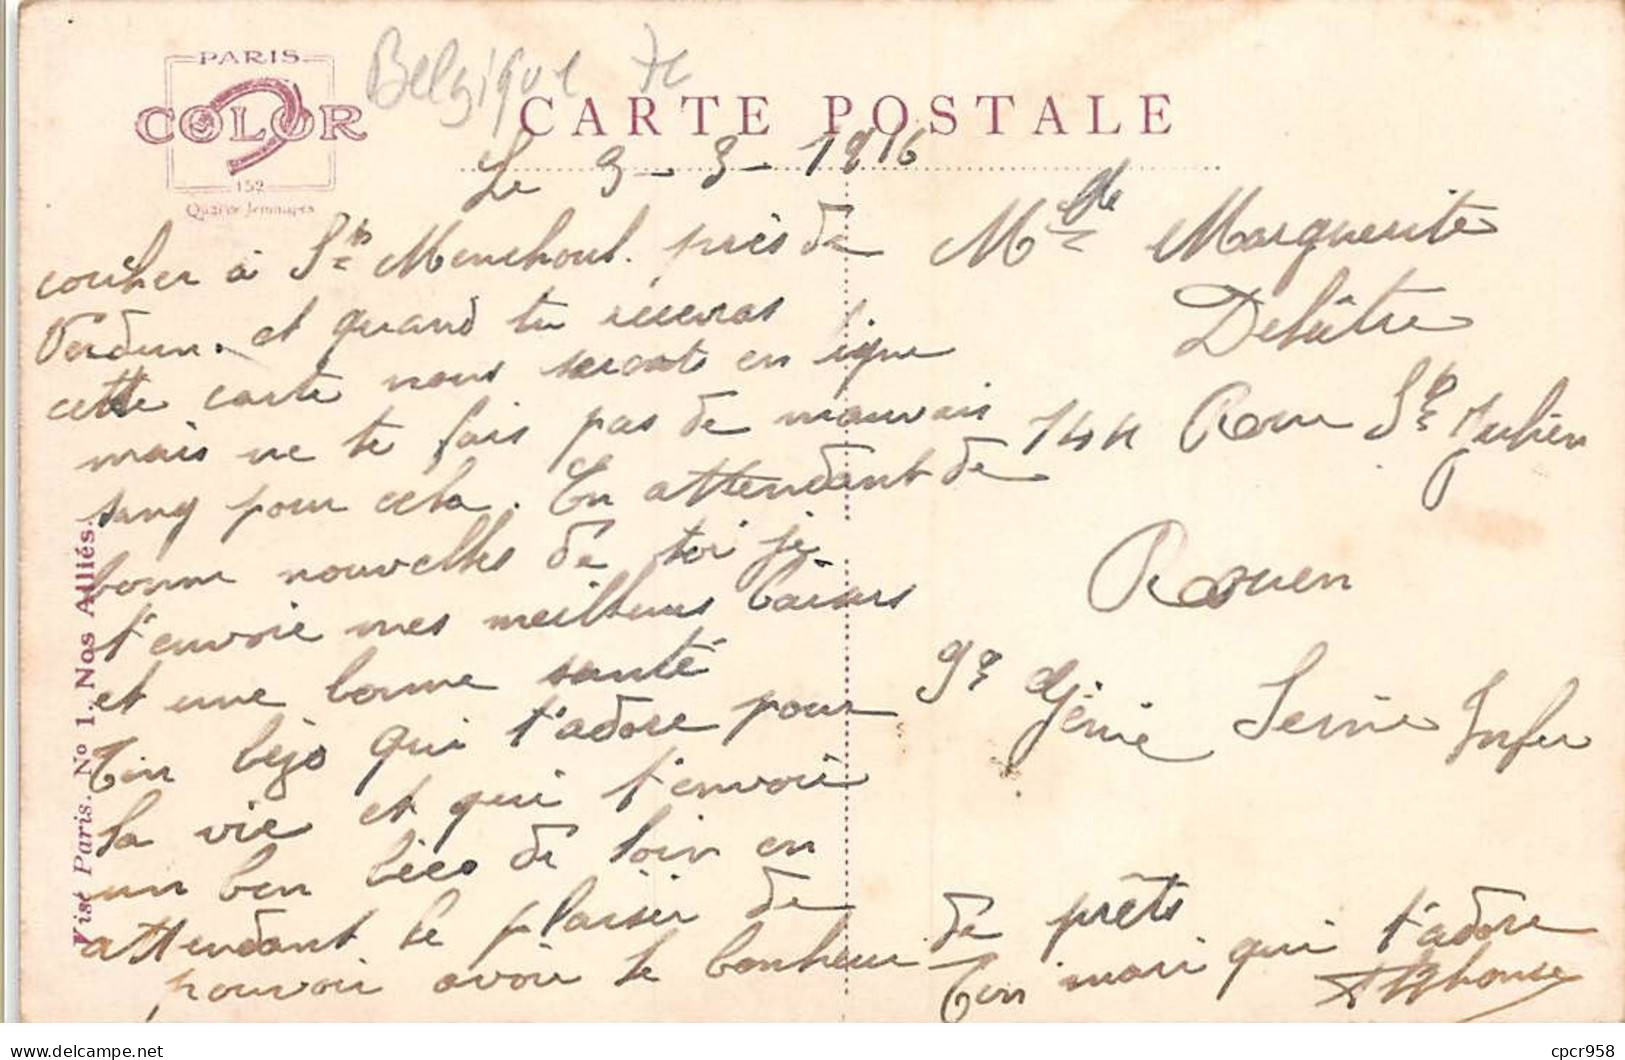 PARIS
COLOR
152
Quai de Jemmapes
Belgique
CARTE POSTALE
Le 9-3-1916
coucher à Ste Menehoul. près de
Verdun. et quand tu receveras
cette carte nous seront en ligne
mais ne te fais pas de mauvais
sang pour cela. En attendant de
bonne nouvelles de toi je
t'envoie mes meilleurs baisers
et une bonne santé
Ton qui t'adore pour
la vie et qui t'envoie
un bon de loin en
attendant le plaisir de
pouvoir avoir le bonheur
de prêts
Ton mari qui t'adore
Alphonse
Marguerite
Delâtre
144 Rue St Julien
Rouen
Seine Infer
Visé Paris. No 1. Nos Alliés.
cpcr958